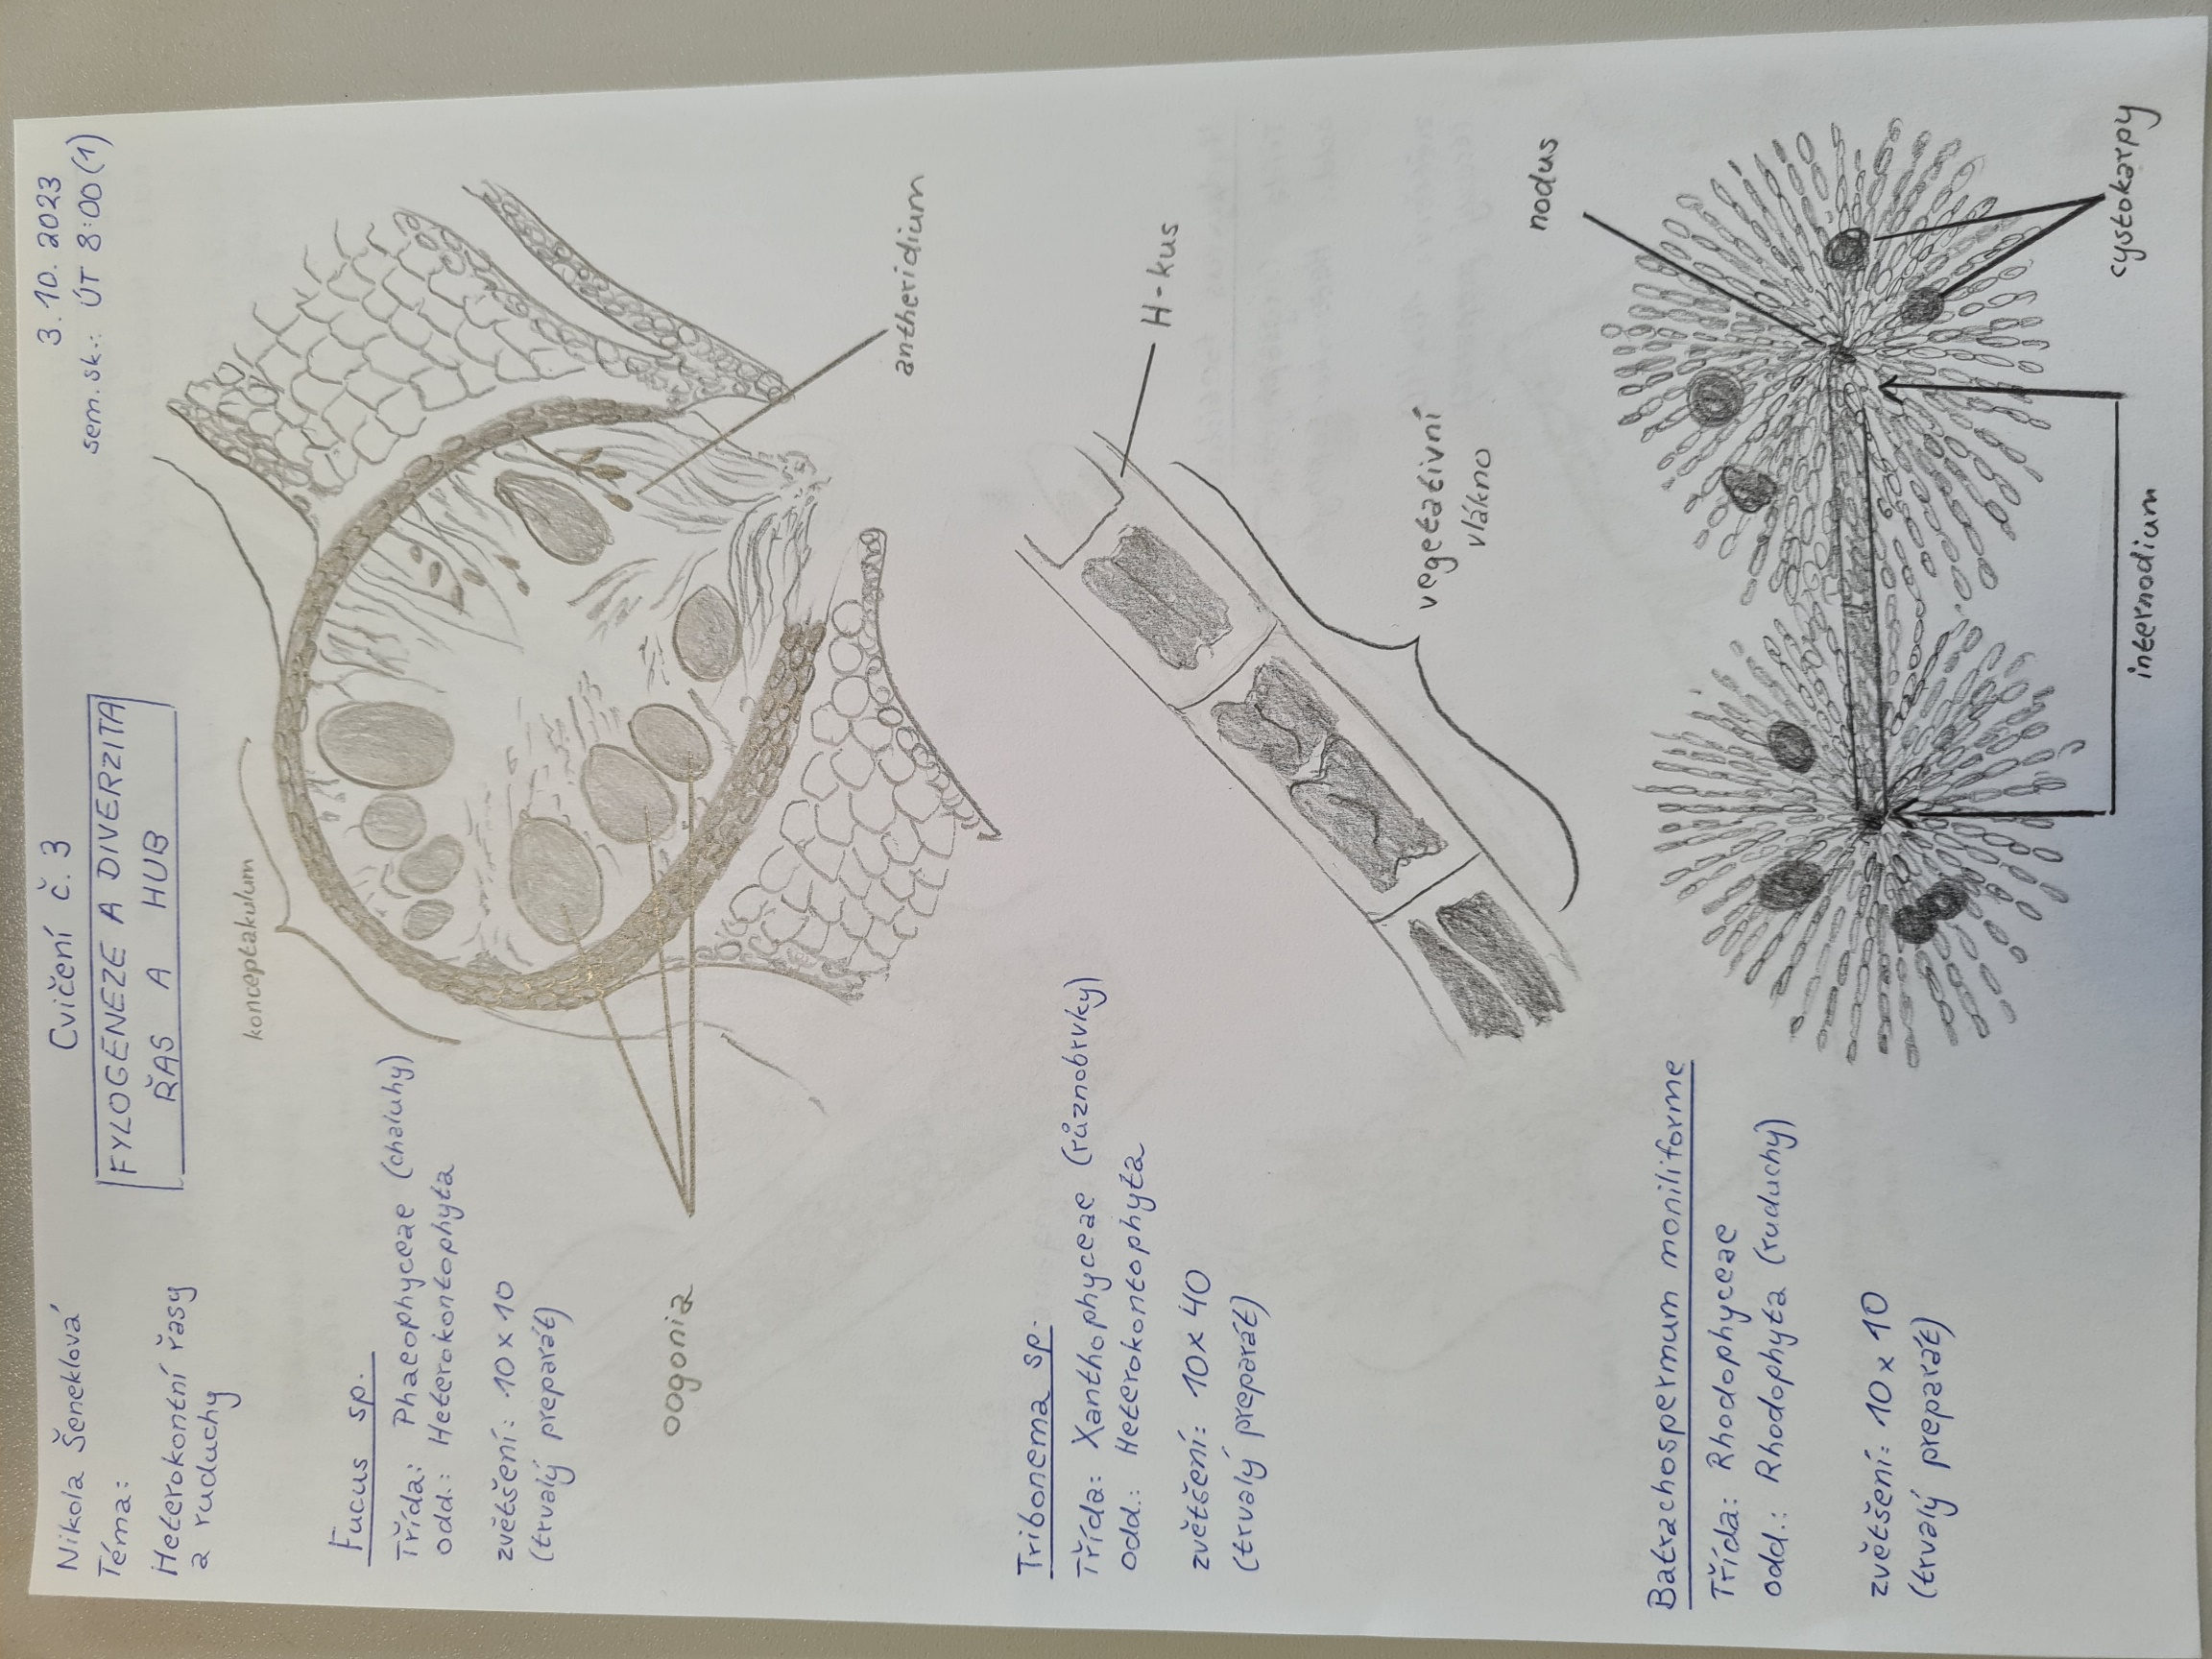 Nikola Šeneklová
Cvičení č. 3
3. 10. 2023
Téma:
FYLOGENEZE A DIVERZITA
ŘAS A HUB
sem. sk.: ÚT 8:00 (1)
Heterokontní řasy
a ruduchy
konceptakulum
Fucus sp.
Třída: Phaeophyceae (chaluhy)
odd.: Heterokontophyta
zvětšení: 10 x 10
(trvalý preparát)
oogonia
antheridium
Tribonema sp.
Třída: Xanthophyceae (různobrvky)
odd.: Heterokontophyta
zvětšení: 10 x 40
(trvalý preparát)
H-kus
vegetativní
vlákno
Batrachospermum moniliforme
Třída: Rhodophyceae
odd.: Rhodophyta (ruduchy)
zvětšení: 10 x 10
(trvalý preparát)
nodus
cystokarpy
internodium